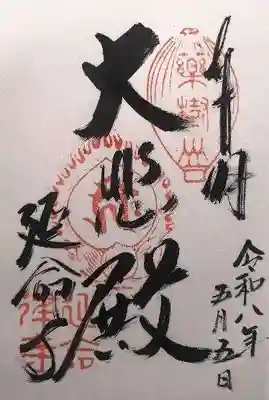 藥樹山
令和八年
五月五日
大悲殿
延命寺